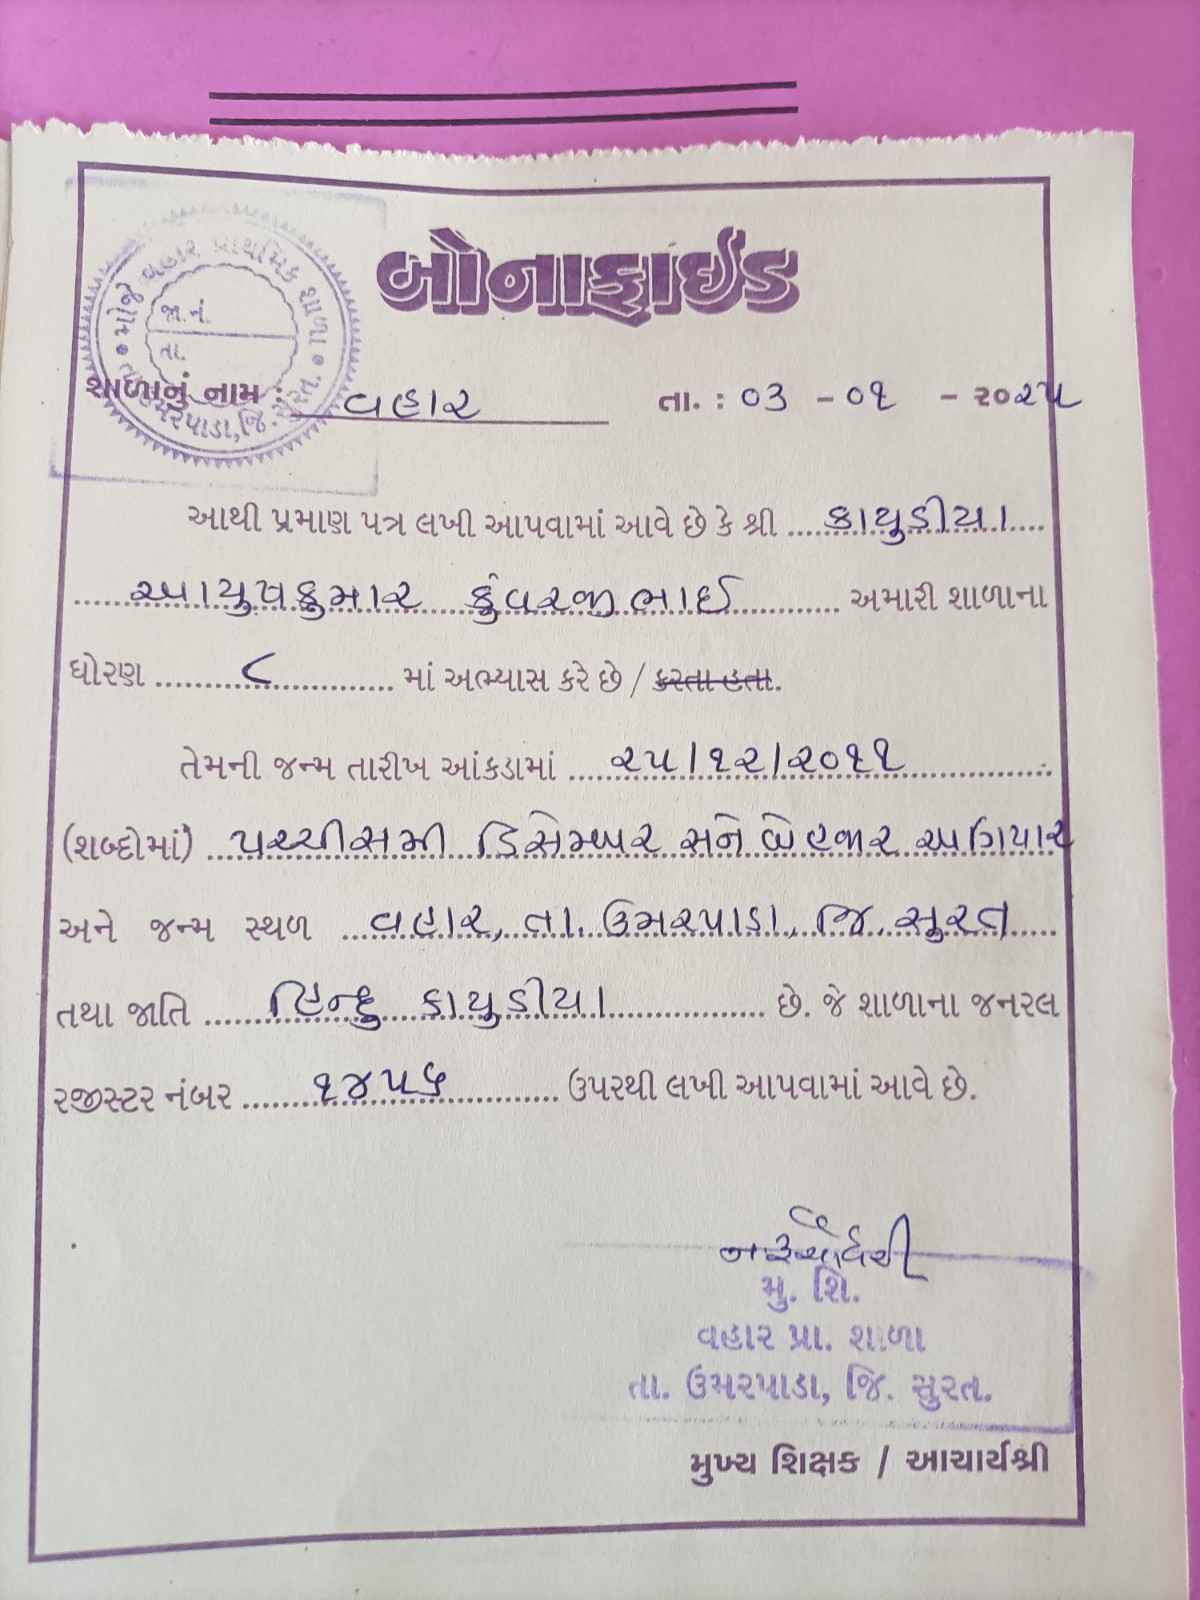 બોનાફાઈડ
મોજે વહાર પ્રાથમિક શાળા
જા.નં.
તા.
તા. ઉમરપાડા, જિ. સુરત.
શાળાનું નામ : વહાર તા. : ૦૩ - ૦૧ - ૨૦૨૫
આથી પ્રમાણ પત્ર લખી આપવામાં આવે છે કે શ્રી કાયુડીયા
આયુષકુમાર કુંવરજીભાઈ અમારી શાળાના
ધોરણ ૮ માં અભ્યાસ કરે છે / કરતા હતા.
તેમની જન્મ તારીખ આંકડામાં ૨૫/૧૨/૨૦૧૧
(શબ્દોમાં) પચ્ચીસમી ડિસેમ્બર સને બેહજાર અગિયાર
અને જન્મ સ્થળ વહાર, તા. ઉમરપાડા, જિ. સુરત
તથા જાતિ હિન્દુ કાયુડીયા છે. જે શાળાના જનરલ
રજીસ્ટર નંબર ૧૪૫૬ ઉપરથી લખી આપવામાં આવે છે.
મુ. શિ.
વહાર પ્રા. શાળા
તા. ઉમરપાડા, જિ. સુરત.
મુખ્ય શિક્ષક / આચાર્યશ્રી